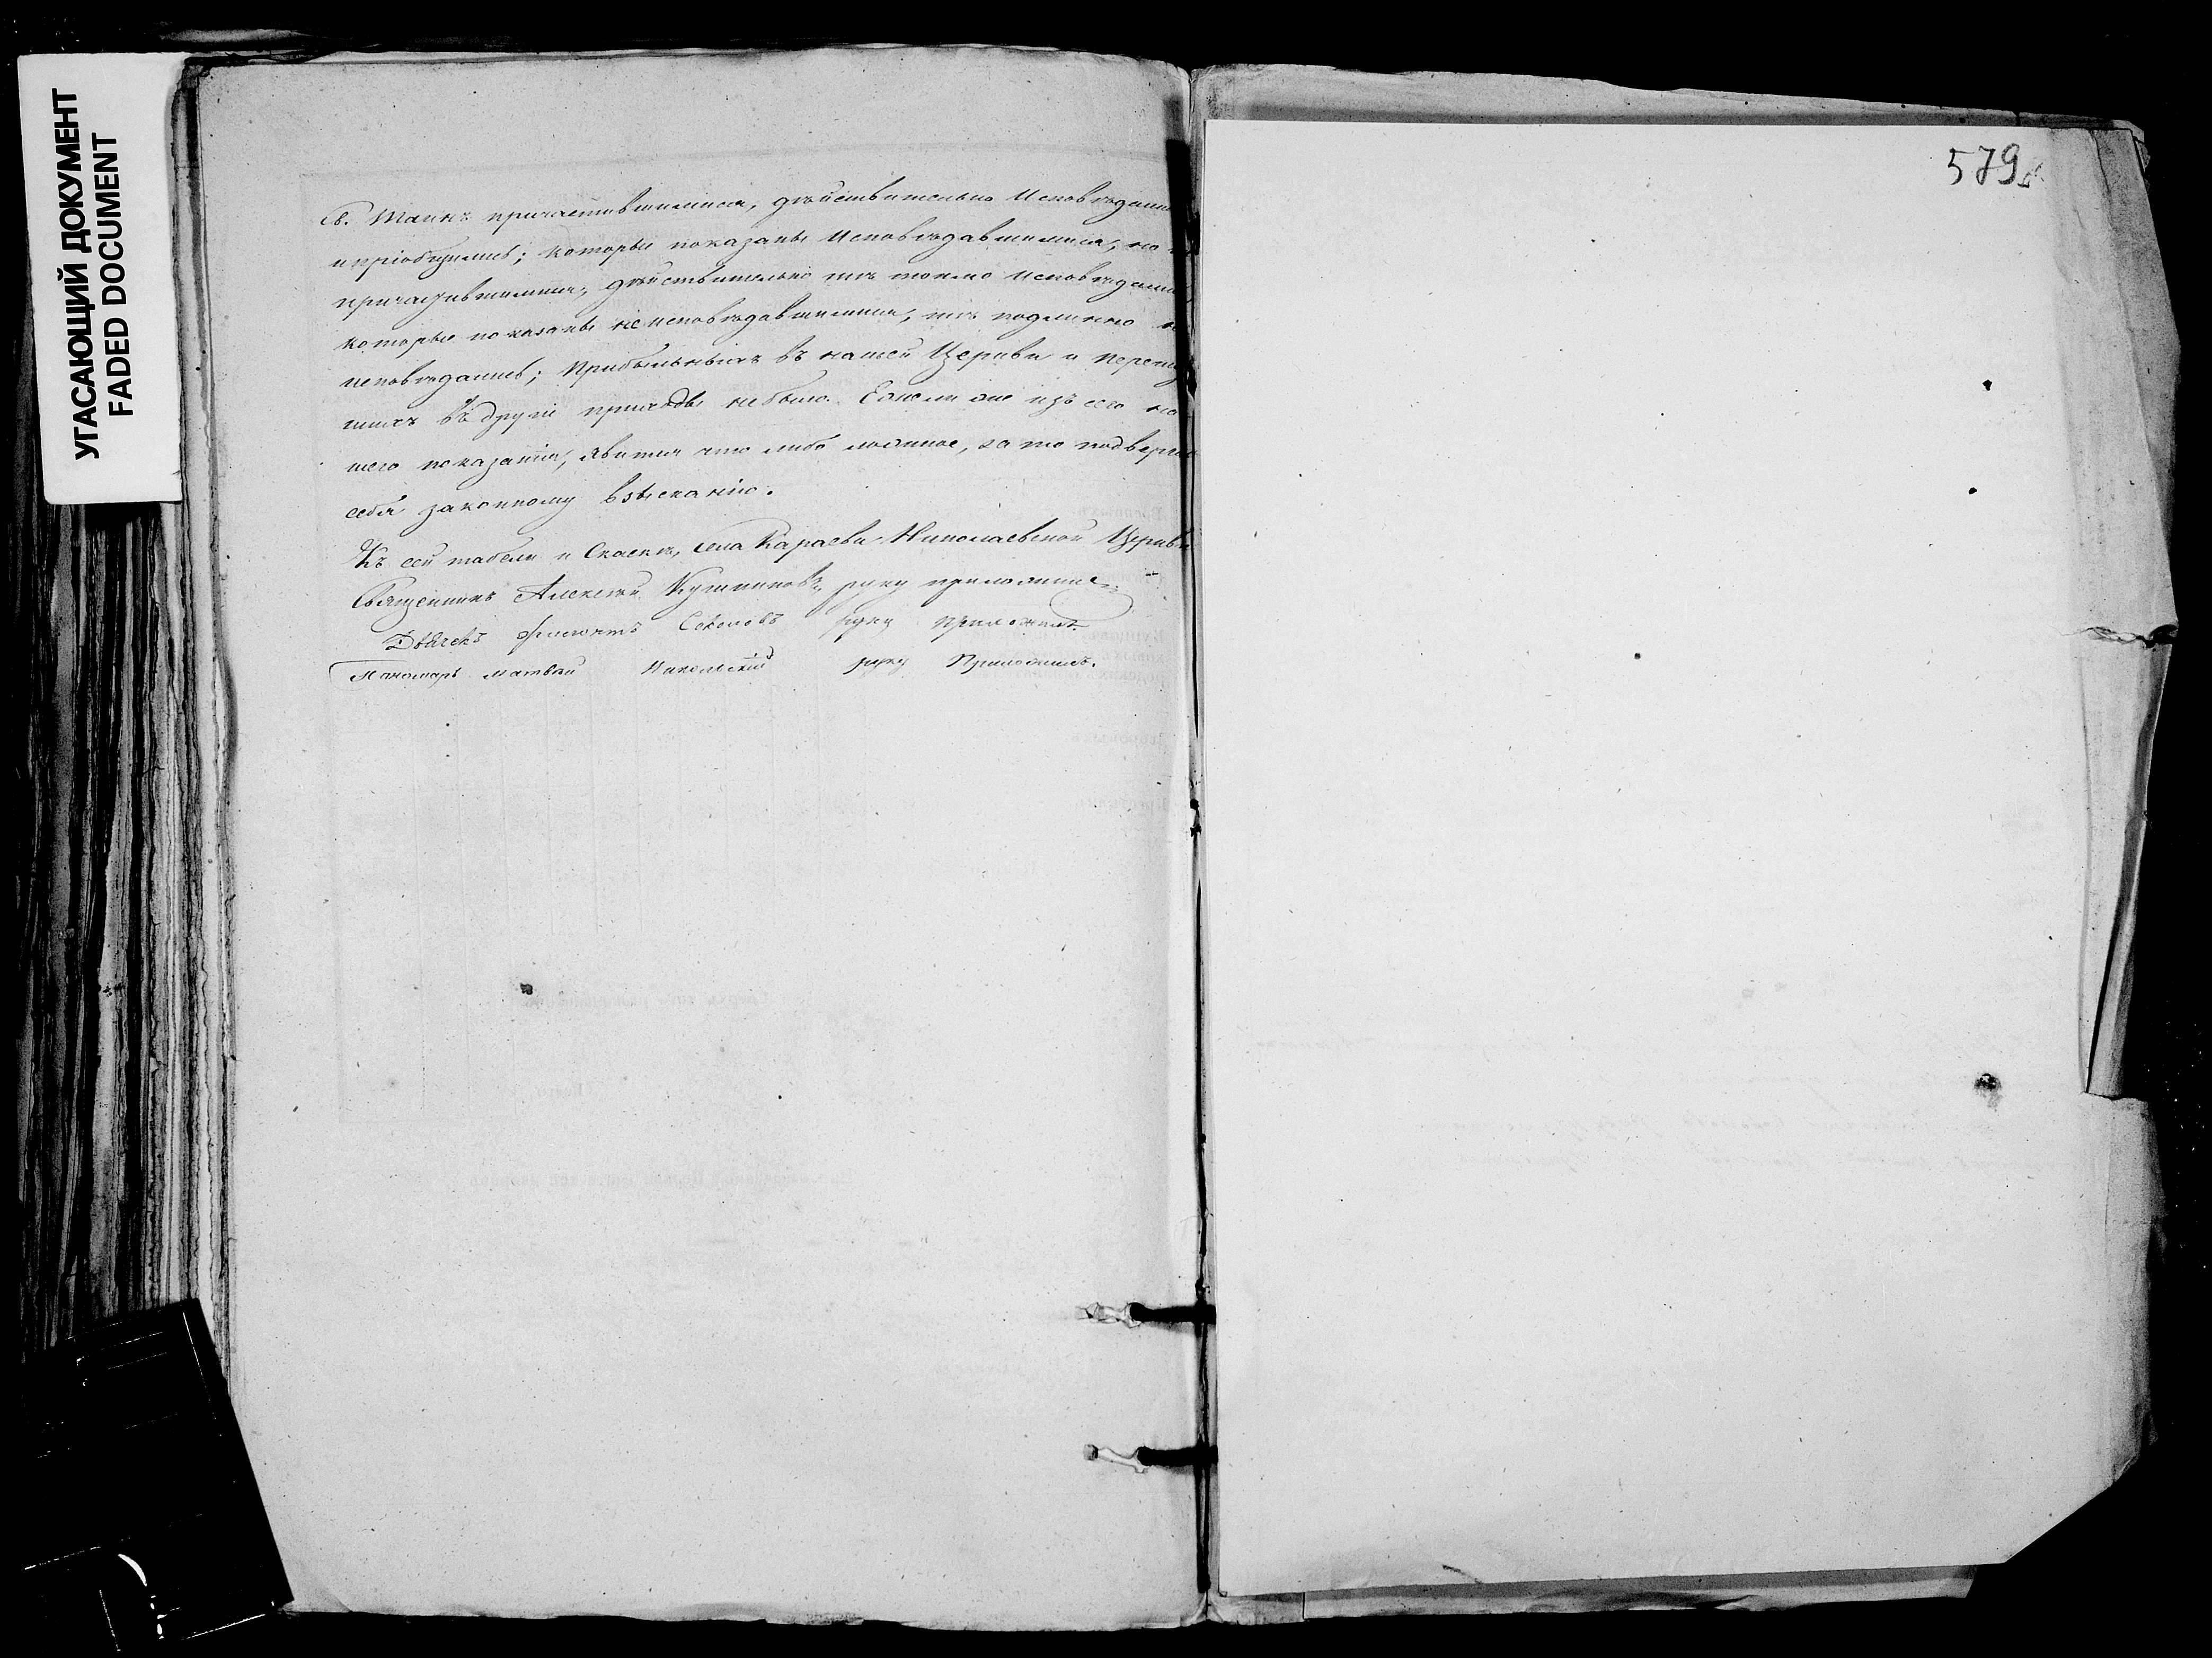 УГАСАЮЩИЙ ДОКУМЕНТ
FADED DOCUMENT
579
Св. Таинъ причастившимися, дѣйствительно Исповѣдались
и пріобщились; которые показаны Исповѣдавшимися, но не
причастившимися, дѣйствительно тѣ токмо Исповѣдались
которые показаны не исповѣдавшимися, тѣ подлинно не
исповѣдались; Прибылыхъ въ нашей Церкви и
въ другіе приходы небыло. Ежели же изъ сего на-
шего показанія, явится что либо ложное, за то подвергаемъ
себя законному взысканію.
Къ сей табели и Сказкѣ, села Караева Николаевской Церкви
Священникъ Алексѣй руку приложилъ
Дьячекъ Соколовъ руку приложилъ
Пономарь матвѣй Никольскій руку Приложилъ.